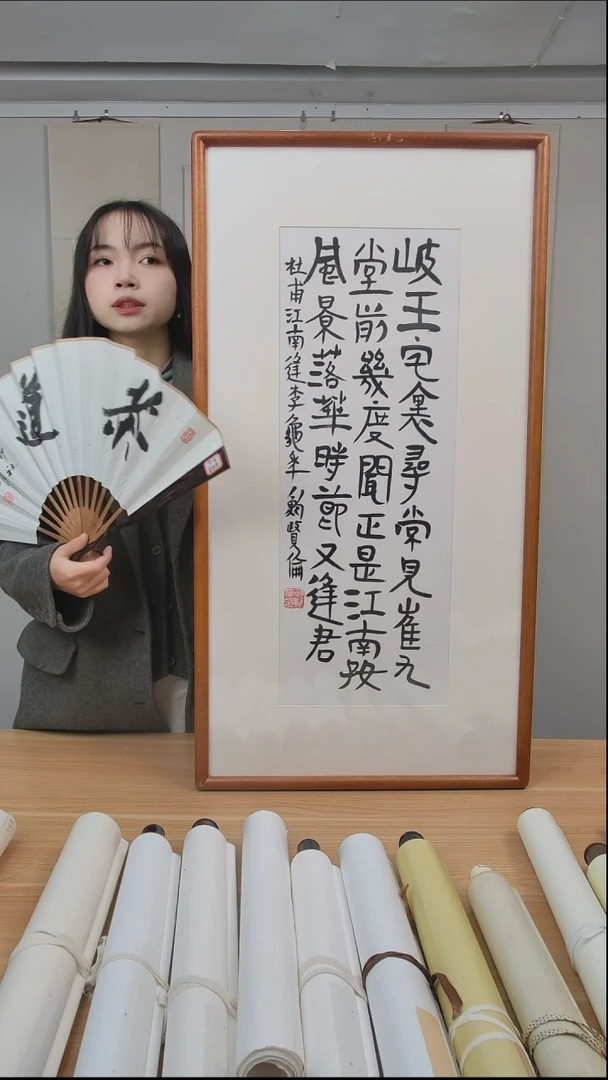 岐王宅裏尋常見崔九
堂前幾度聞正是江南好
風景落華時節又逢君
杜甫江南逢李龜年 賢倫
道